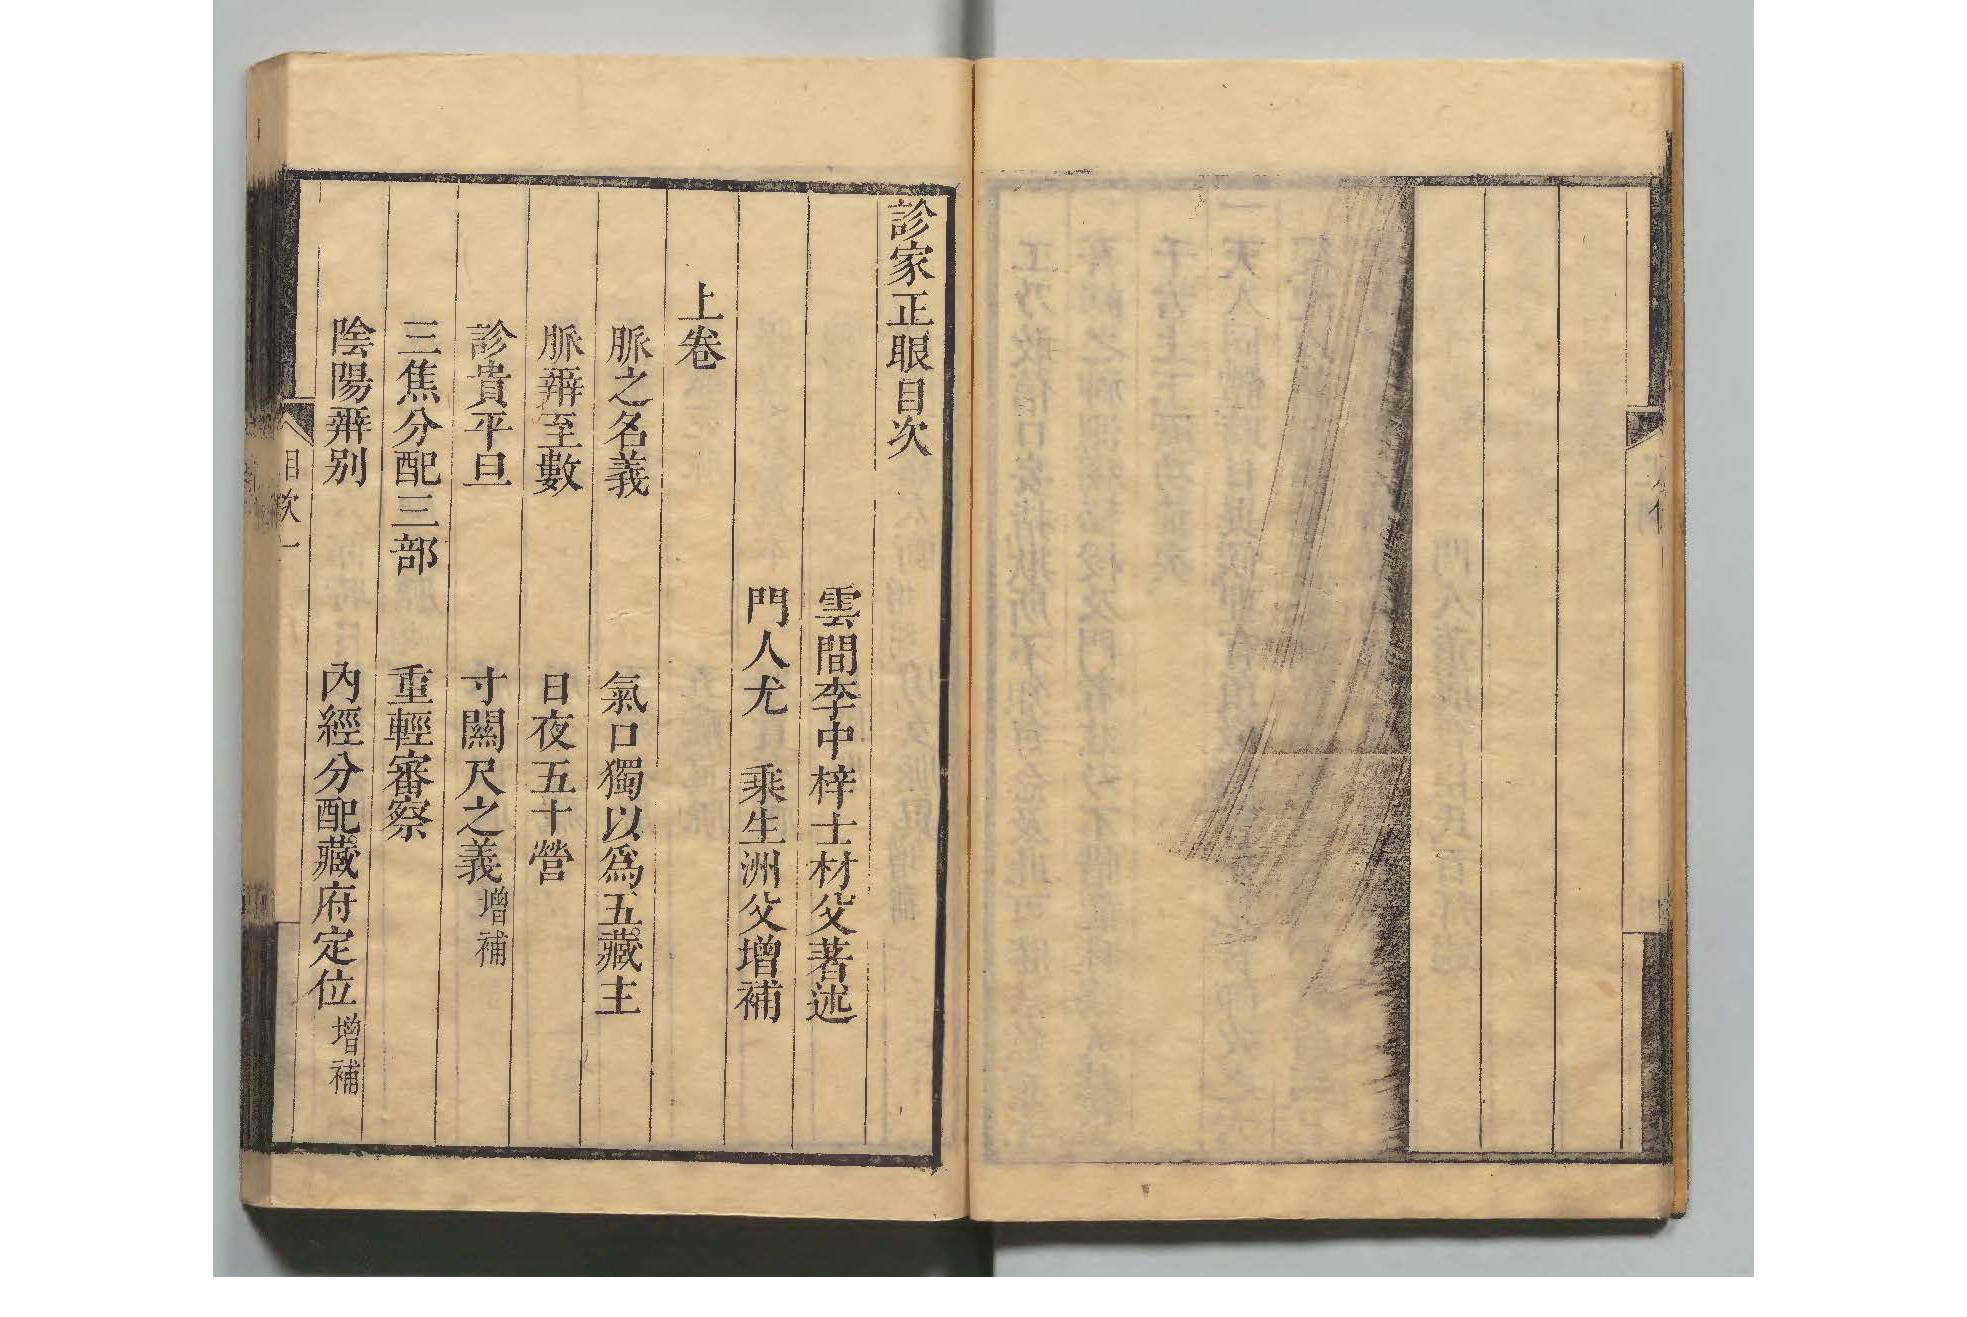 診家正眼目次
雲間李中梓士材父著述
門人尤 乘生洲父增補
上卷
脈之名義 氣口獨以爲五藏主
脈辨至數 日夜五十營
診貴平旦 寸關尺之義增補
三焦分配三部 重輕審察
陰陽辨别 內經分配藏府定位增補
目次 一